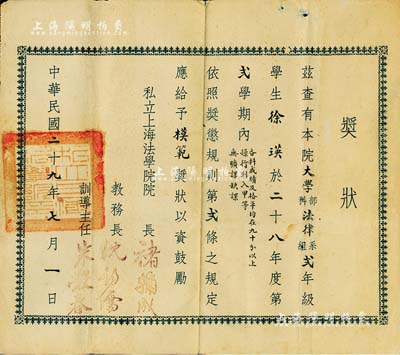 上海陽明拍賣
獎狀
茲查有本院大學部法律系弍年級
專科 組
學生徐瑛於二十八年度第
弍學期內
各科成績及格平均在九十分以上
操行列入甲等
無曠課缺課
依照獎懲規則第弍條之規定
應給予模範獎狀以資鼓勵
私立上海法學院院長 褚輔成
教務長 沈
訓導主任
中華民國二十九年七月一日